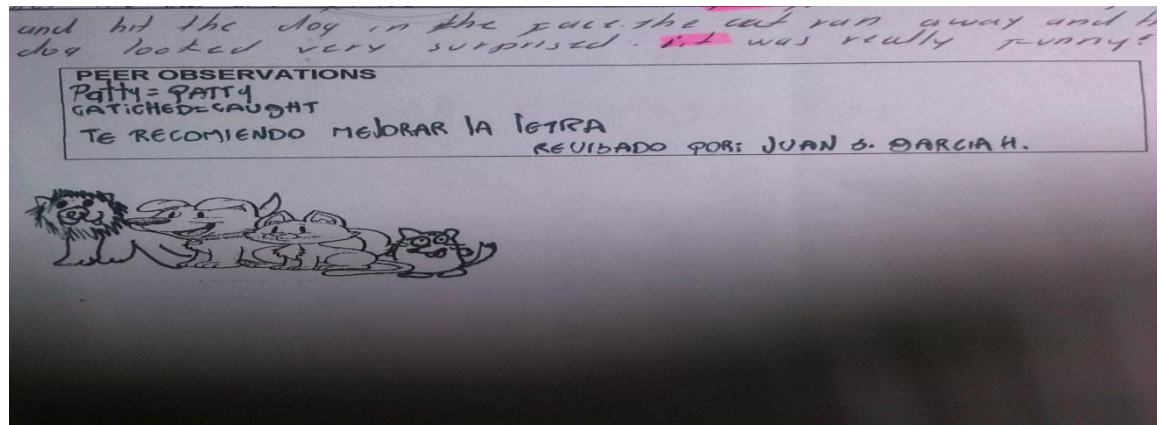 and hit the dog in the face. the cat ran away and
dog looked very surprised. it was really funny!
PEER OBSERVATIONS
Patty = PATTY
CATICHED = CAUGHT
TE RECOMIENDO MEJORAR LA LETRA
REVISADO POR: JUAN S. GARCIA H.